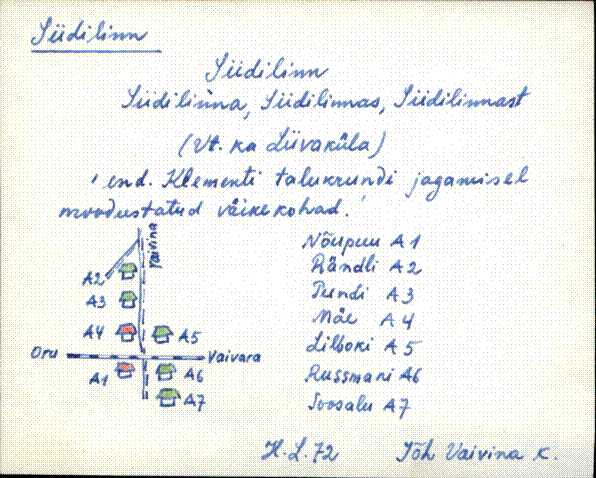 Siidilinn
Siidilinn
Siidilinna, Siidilinnas, Siidilinnast
(Vt. ka Liivaküla)
'end. Klementi talukrundi jagamisel
moodustatud väikekohad.'
Vaivina
A2
A3
A4
A5
Oru
Vaivara
A1
A6
A7
Nõupuu A1
Rändli A2
Pundi A3
Mäe A4
Lilboki A5
Russmani A6
Soosalu A7
H.L.72 Jõh Vaivina k.